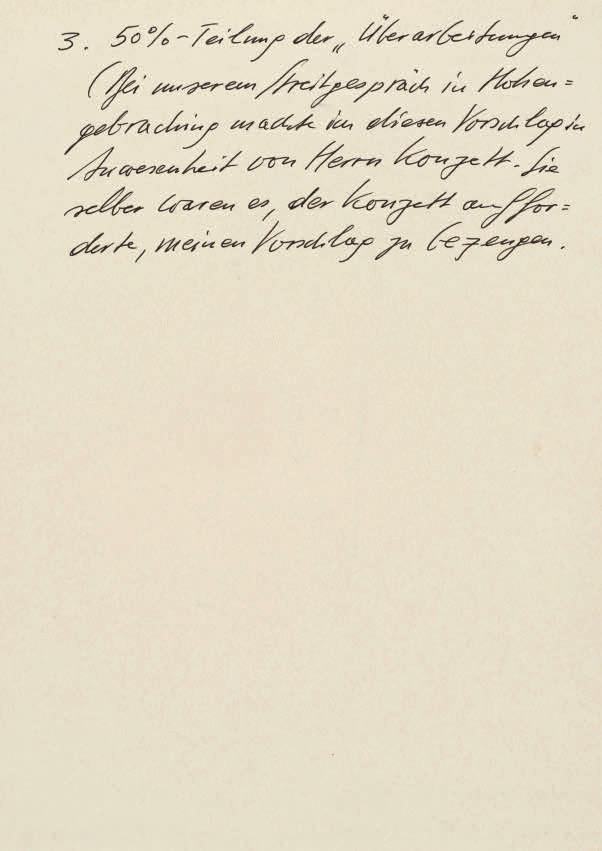 3. 50%-Teilung der „Überarbeitungen"
(Bei unserem Streitgespräch in Hohen=
gebraching machte ich diesen Vorschlag in
Anwesenheit von Herrn Konzett. Sie
selber waren es, der Konzett auffor=
derte, meinen Vorschlag zu bezeugen.